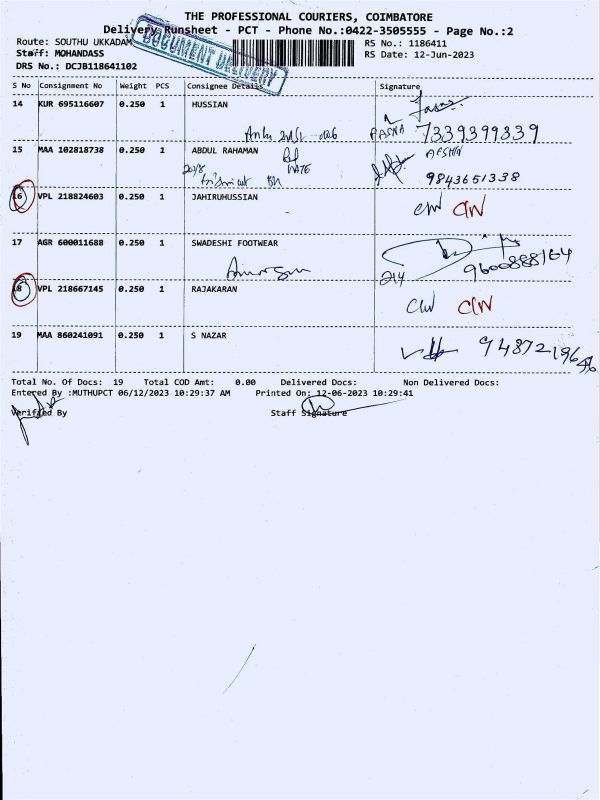 THE PROFESSIONAL COURIERS, COIMBATORE
Delivery Runsheet - PCT - Phone No.:0422-3505555 - Page No.:2
Route: SOUTHU UKKADAM
RS No.: 1186411
Staff: MOHANDASS
RS Date: 12-Jun-2023
DRS No.: DCJB118641102
DOCUMENT DELIVERY
S No Consignment No Weight PCS Consignee Details Signature
14 KUR 695116607 0.250 1 HUSSIAN
FASNA 7339399339
15 MAA 102818738 0.250 1 ABDUL RAHAMAN
9843651338
16 VPL 218824603 0.250 1 JAHIRUHUSSIAN
CIW CIW
17 AGR 600011688 0.250 1 SWADESHI FOOTWEAR
9600888164
18 VPL 218667145 0.250 1 RAJAKARAN
CIW CIW
19 MAA 860241091 0.250 1 S NAZAR
Total No. Of Docs: 19 Total COD Amt: 0.00 Delivered Docs: Non Delivered Docs:
Entered By :MUTHUPCT 06/12/2023 10:29:37 AM Printed On: 12-06-2023 10:29:41
Verified By Staff Signature